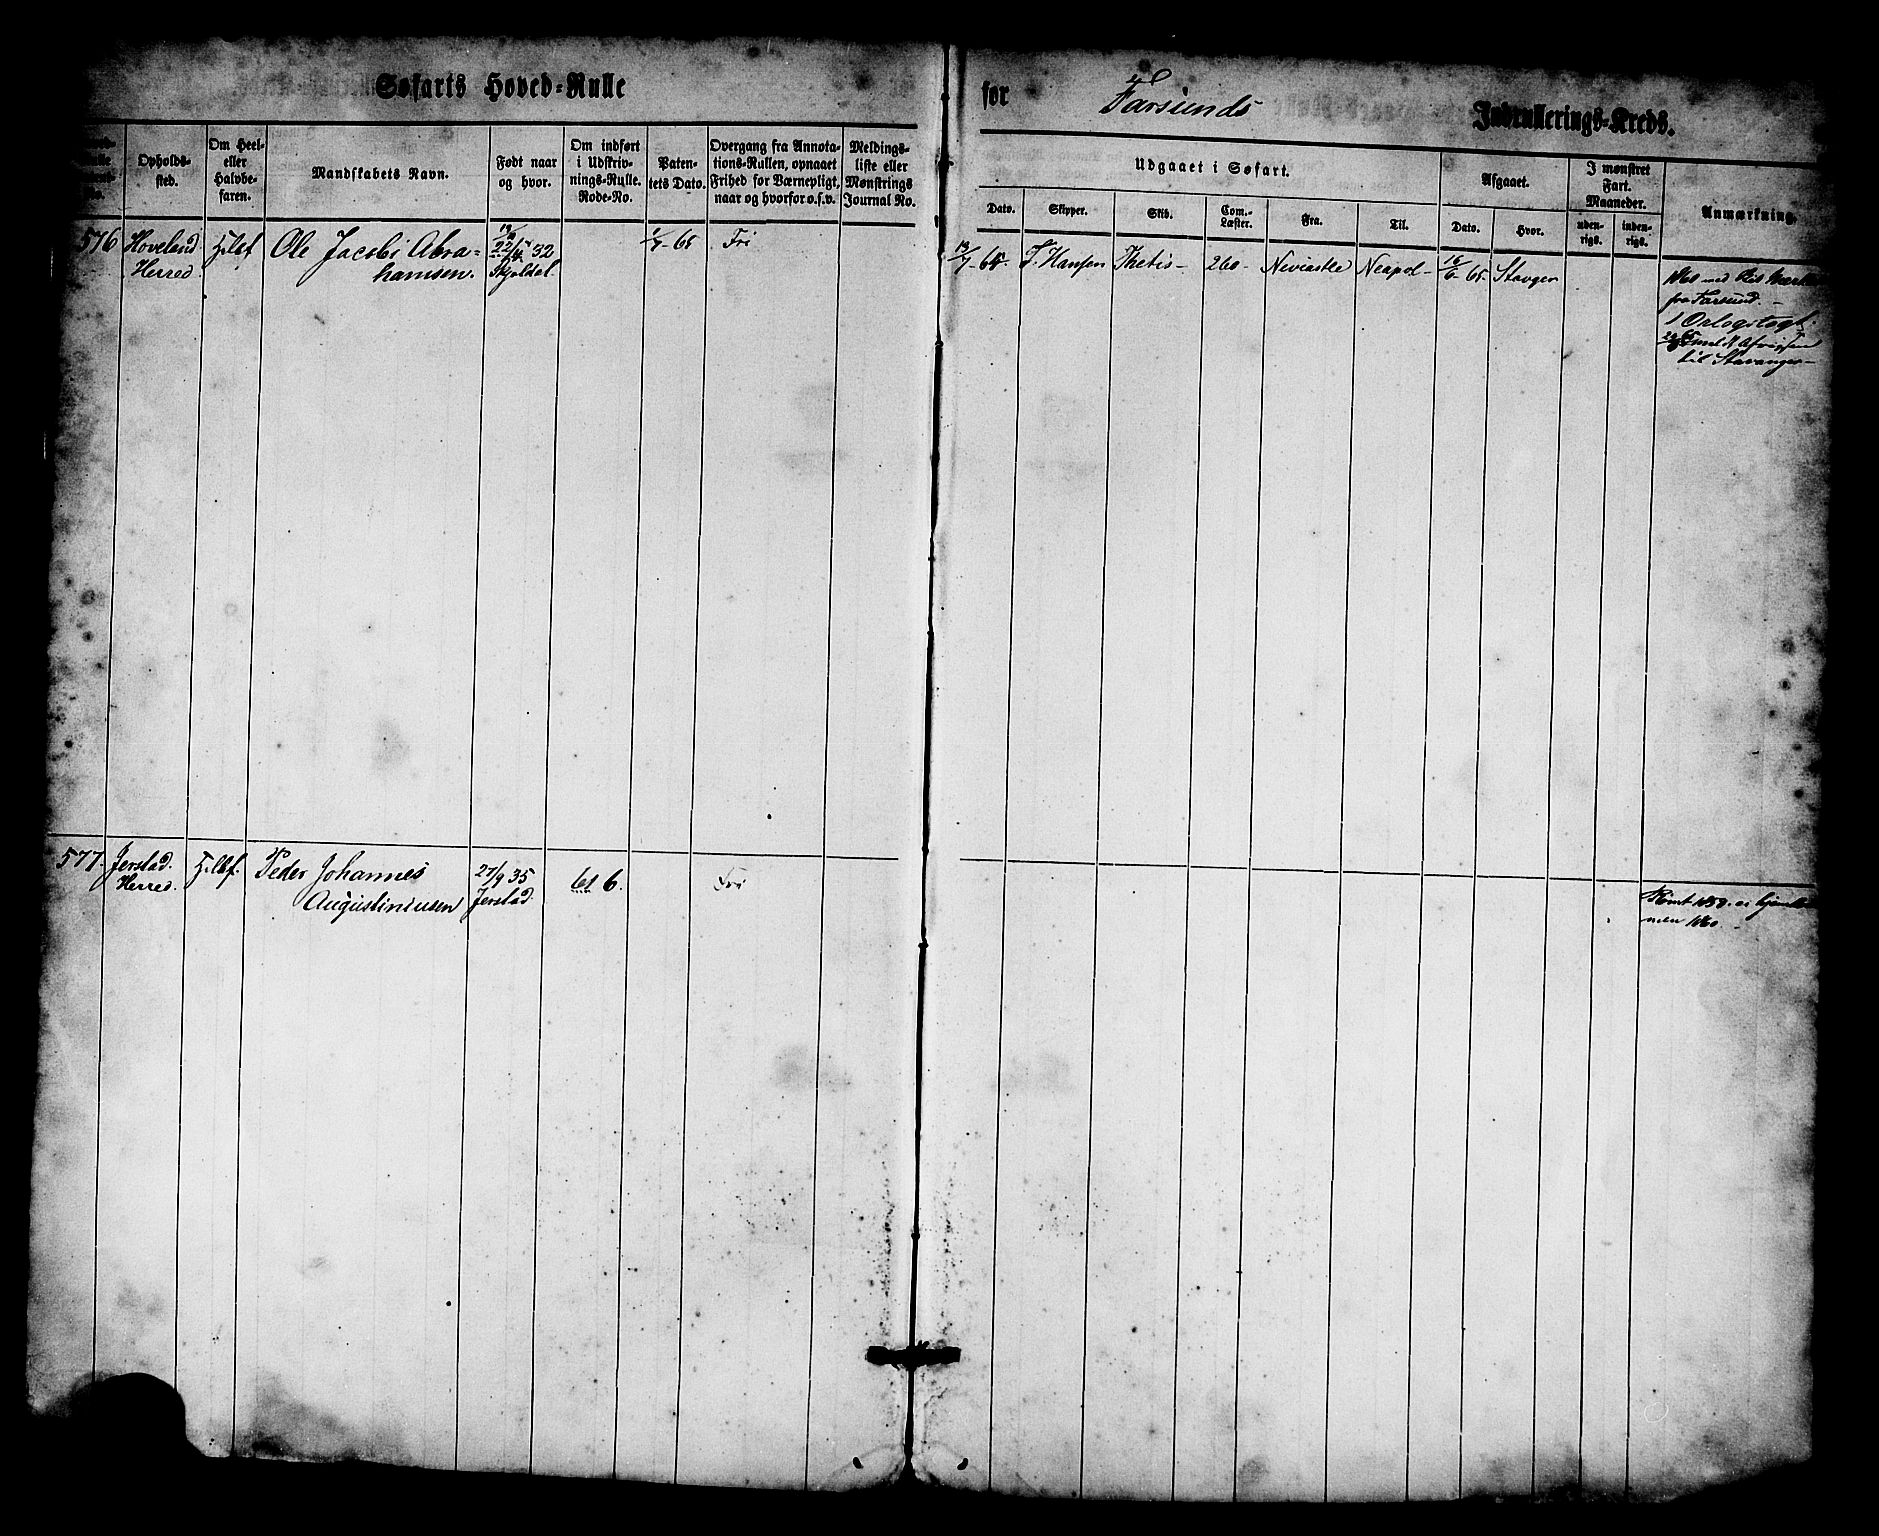 Søfarts Hoved-Rulle
for Farsunds Indrullerings-Kreds.
Opholds-
sted.
Om Heel-
eller
Halvbe-
faren.
Mandskabets Navn.
Født naar
og hvor.
Om indført
i Udskriv-
nings-Rulle.
Rode-No.
Paten-
tets Dato.
Overgang fra Annota-
tions-Rullen, opnaaet
Frihed for Værnepligt,
naar og hvorfor o.s.v.
Meldings-
liste eller
Mønstrings
Journal No.
Udgaaet i Søfart.
Dato.
Skipper.
Skib.
Com.-
Læster.
Fra.
Til.
Afgaaet.
Dato.
Hvor.
I mønstret
Fart.
Maaneder.
uden-
rigs.
inden-
rigs.
Anmærkning.
576
Hoveland
Herred
Hlbf
Ole Jacob Abra-
hamsen.
32
1/7 - 65
Fri
13/7 - 64.
T. Hansen
Thetis -
260 -
Neapel -
16/6 - 65.
Stavger
fra Farsund. -
1 Orlogstogt.
til Stavanger -
577.
Jerstad.
Herred.
Hlbf.
Peder Johannes
Augustiniusen
27/9 35
Jerstad.
61 6.
Fri
Romt 1858.
men 1860. -